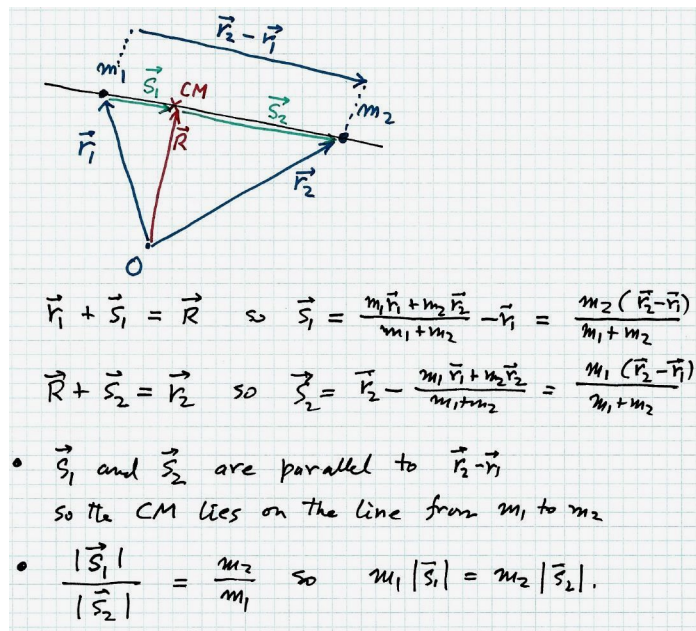 r⃗₂ - r⃗₁
m₁ s⃗₁ CM s⃗₂ m₂
r⃗₁ R⃗ r⃗₂
O
r⃗₁ + s⃗₁ = R⃗ so s⃗₁ = (m₁r⃗₁ + m₂r⃗₂)/(m₁+m₂) - r⃗₁ = m₂(r⃗₂-r⃗₁)/(m₁+m₂)
R⃗ + s⃗₂ = r⃗₂ so s⃗₂ = r⃗₂ - (m₁r⃗₁ + m₂r⃗₂)/(m₁+m₂) = m₁(r⃗₂-r⃗₁)/(m₁+m₂)
• s⃗₁ and s⃗₂ are parallel to r⃗₂-r⃗₁
so the CM lies on the line from m₁ to m₂
• |s⃗₁|/|s⃗₂| = m₂/m₁ so m₁|s⃗₁| = m₂|s⃗₂|.